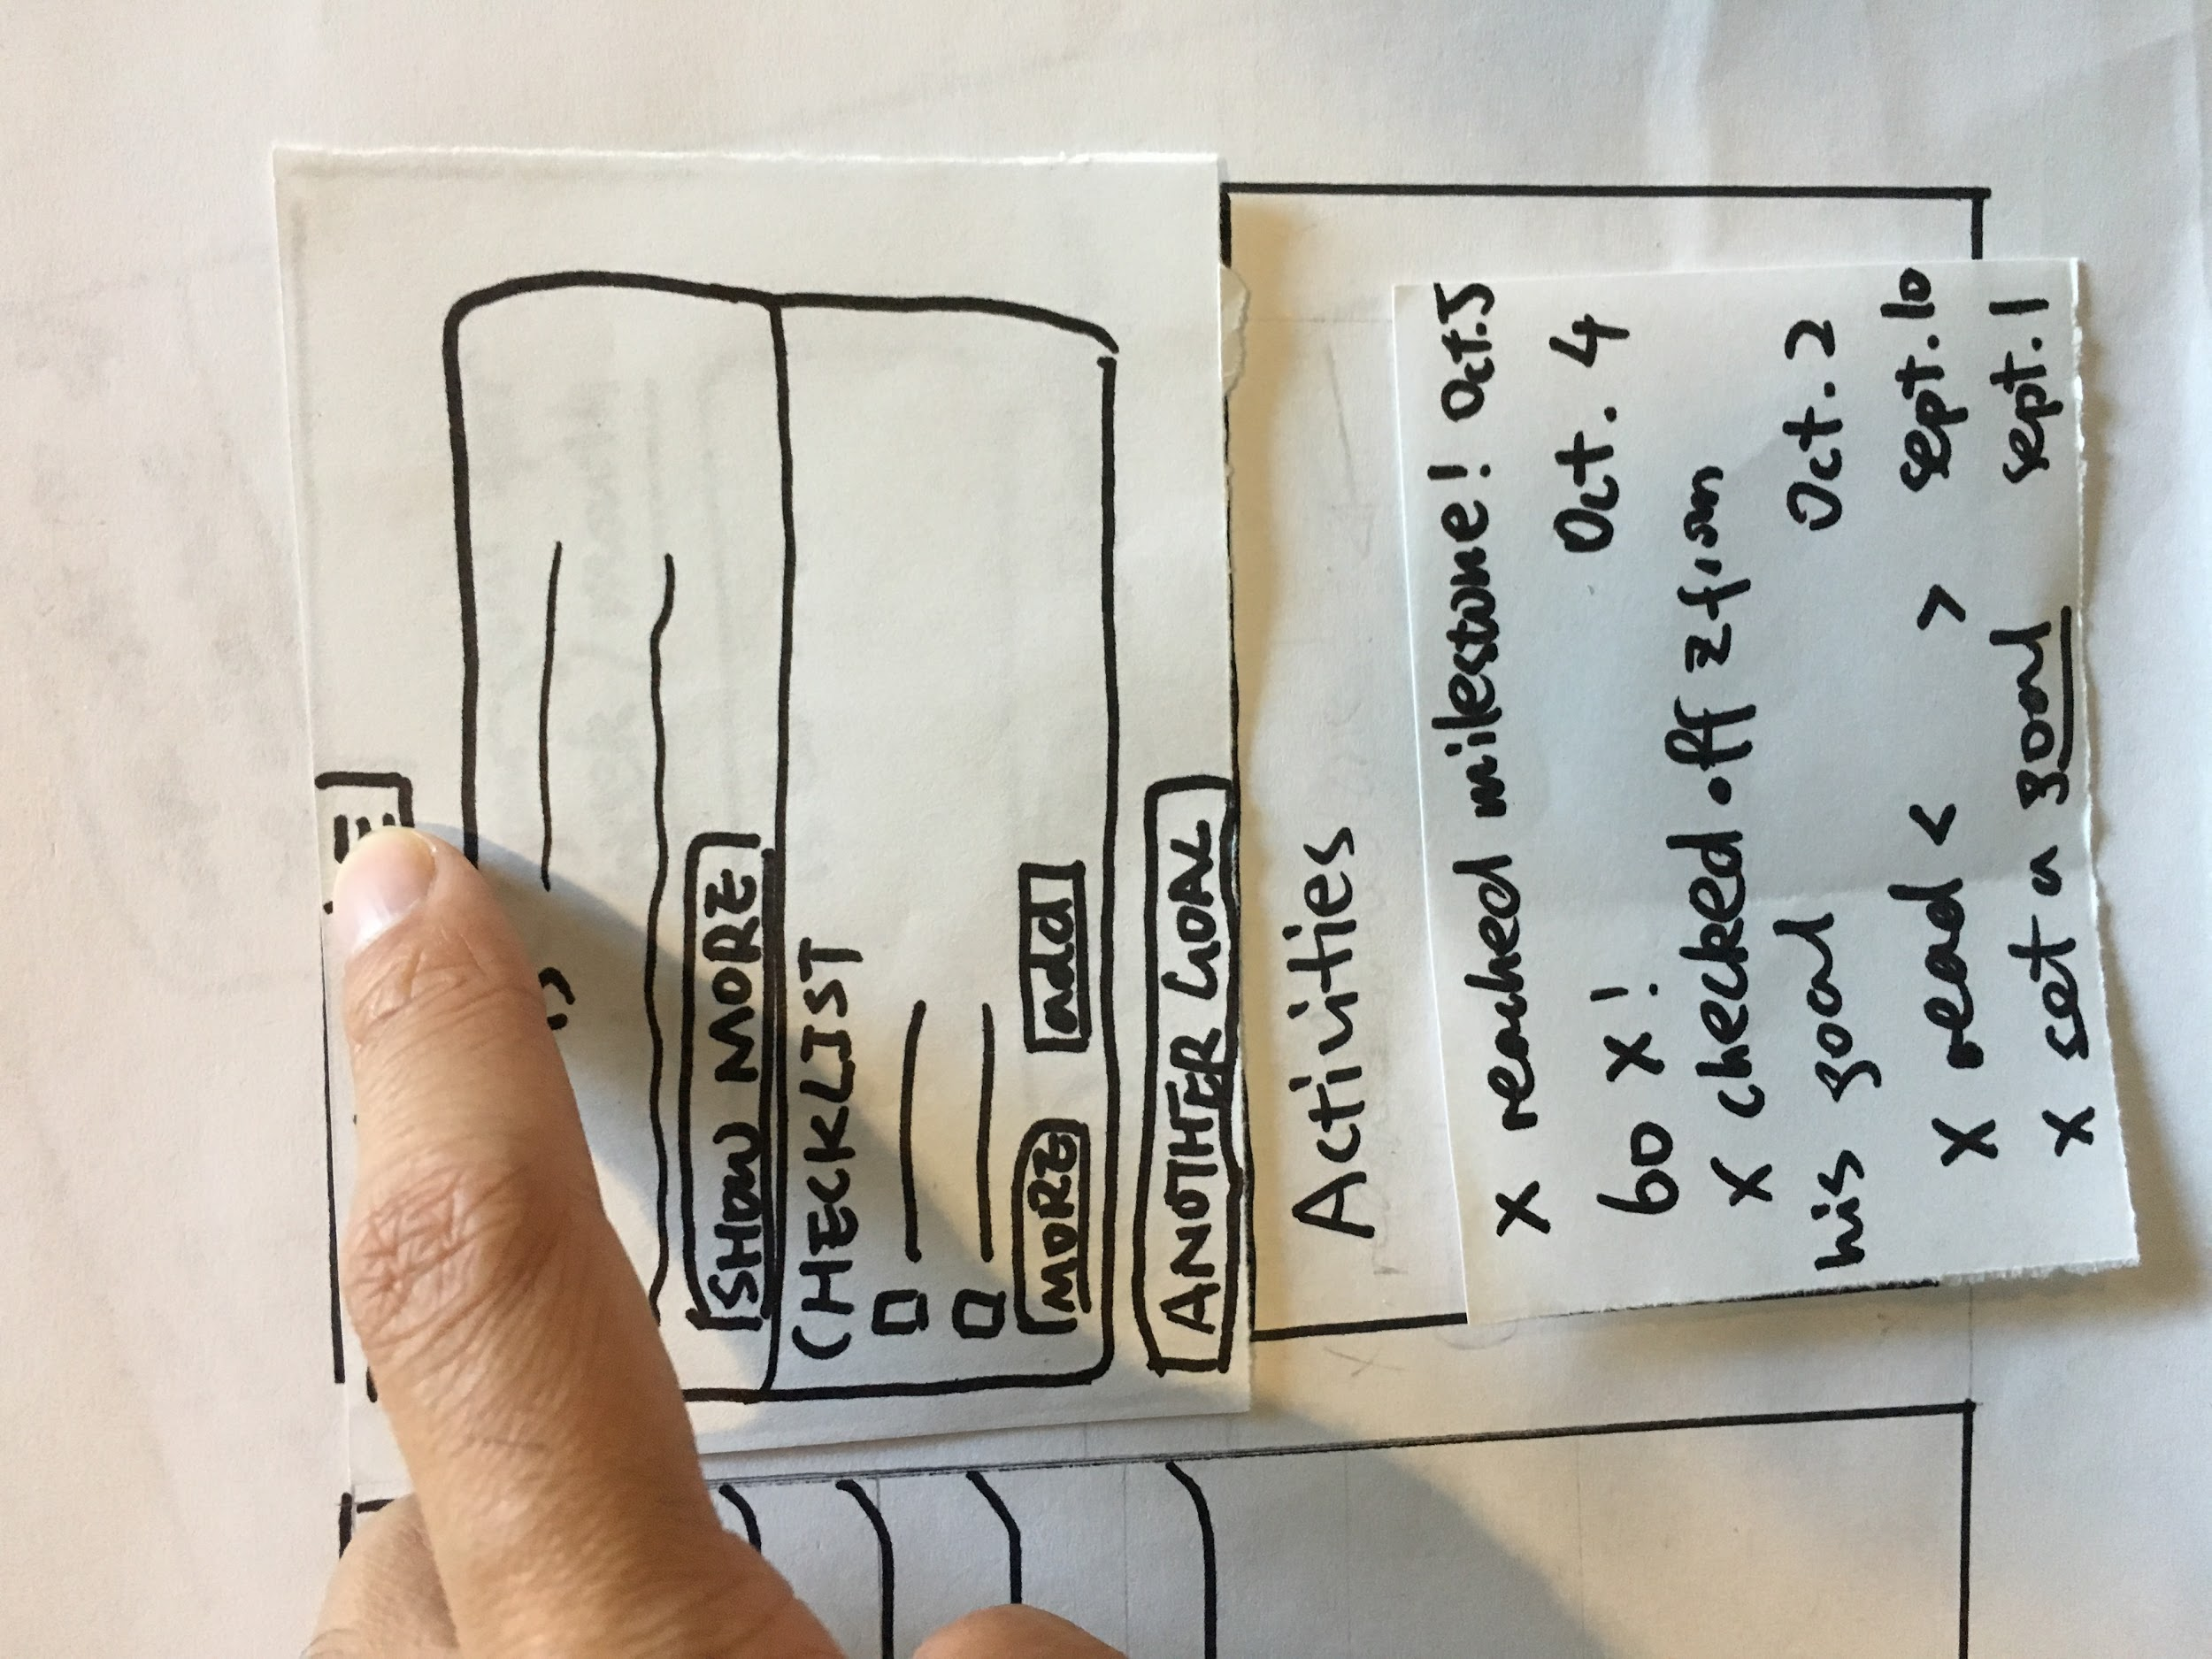 SHOW MORE
CHECKLIST
MORE add
ANOTHER GOAL
Activities
X reached milestone! Oct. 5
60 X! Oct. 4
X checked off 2 from
his goal Oct. 2
X read < > Sept. 10
X set a goal Sept. 1